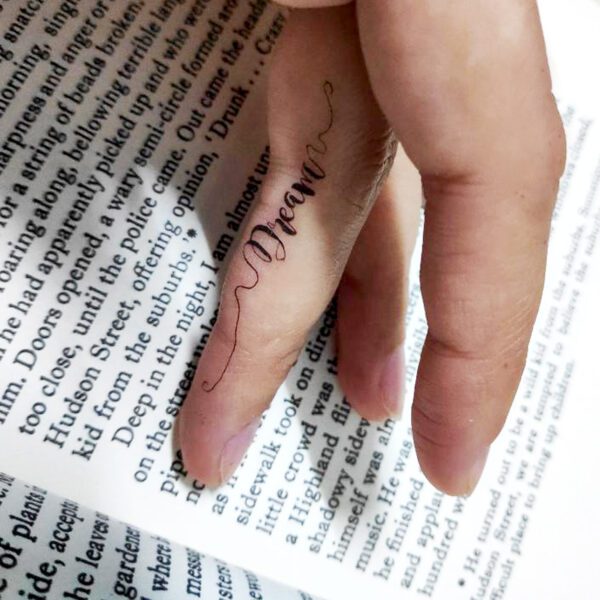 Dream
morning, sing
sharpness and anger or
or a string of beads broken,
roaring along, bellowing terrible lan
he had apparently picked up and who were
him. Doors opened, a wary semi-circle formed aroun
too close, until the police came. Out came the heads
Hudson Street, offering opinion, 'Drunk . . . Crazy
kid from the suburbs.'*
Deep in the night, I am almost un
on the street unles
pipe
as i
sidewalk took on direct
little crowd was th
a Highland flin
shadowy sidew
himself was alm
music. He was
he finished
and applau
hundred w
* He turned out to be a wild kid from the suburbs.
Hudson Street, we are tempted to believe the suburbs
difficult place to bring up children.
of plants i
ide, accept
the leaves
gardener
where
message